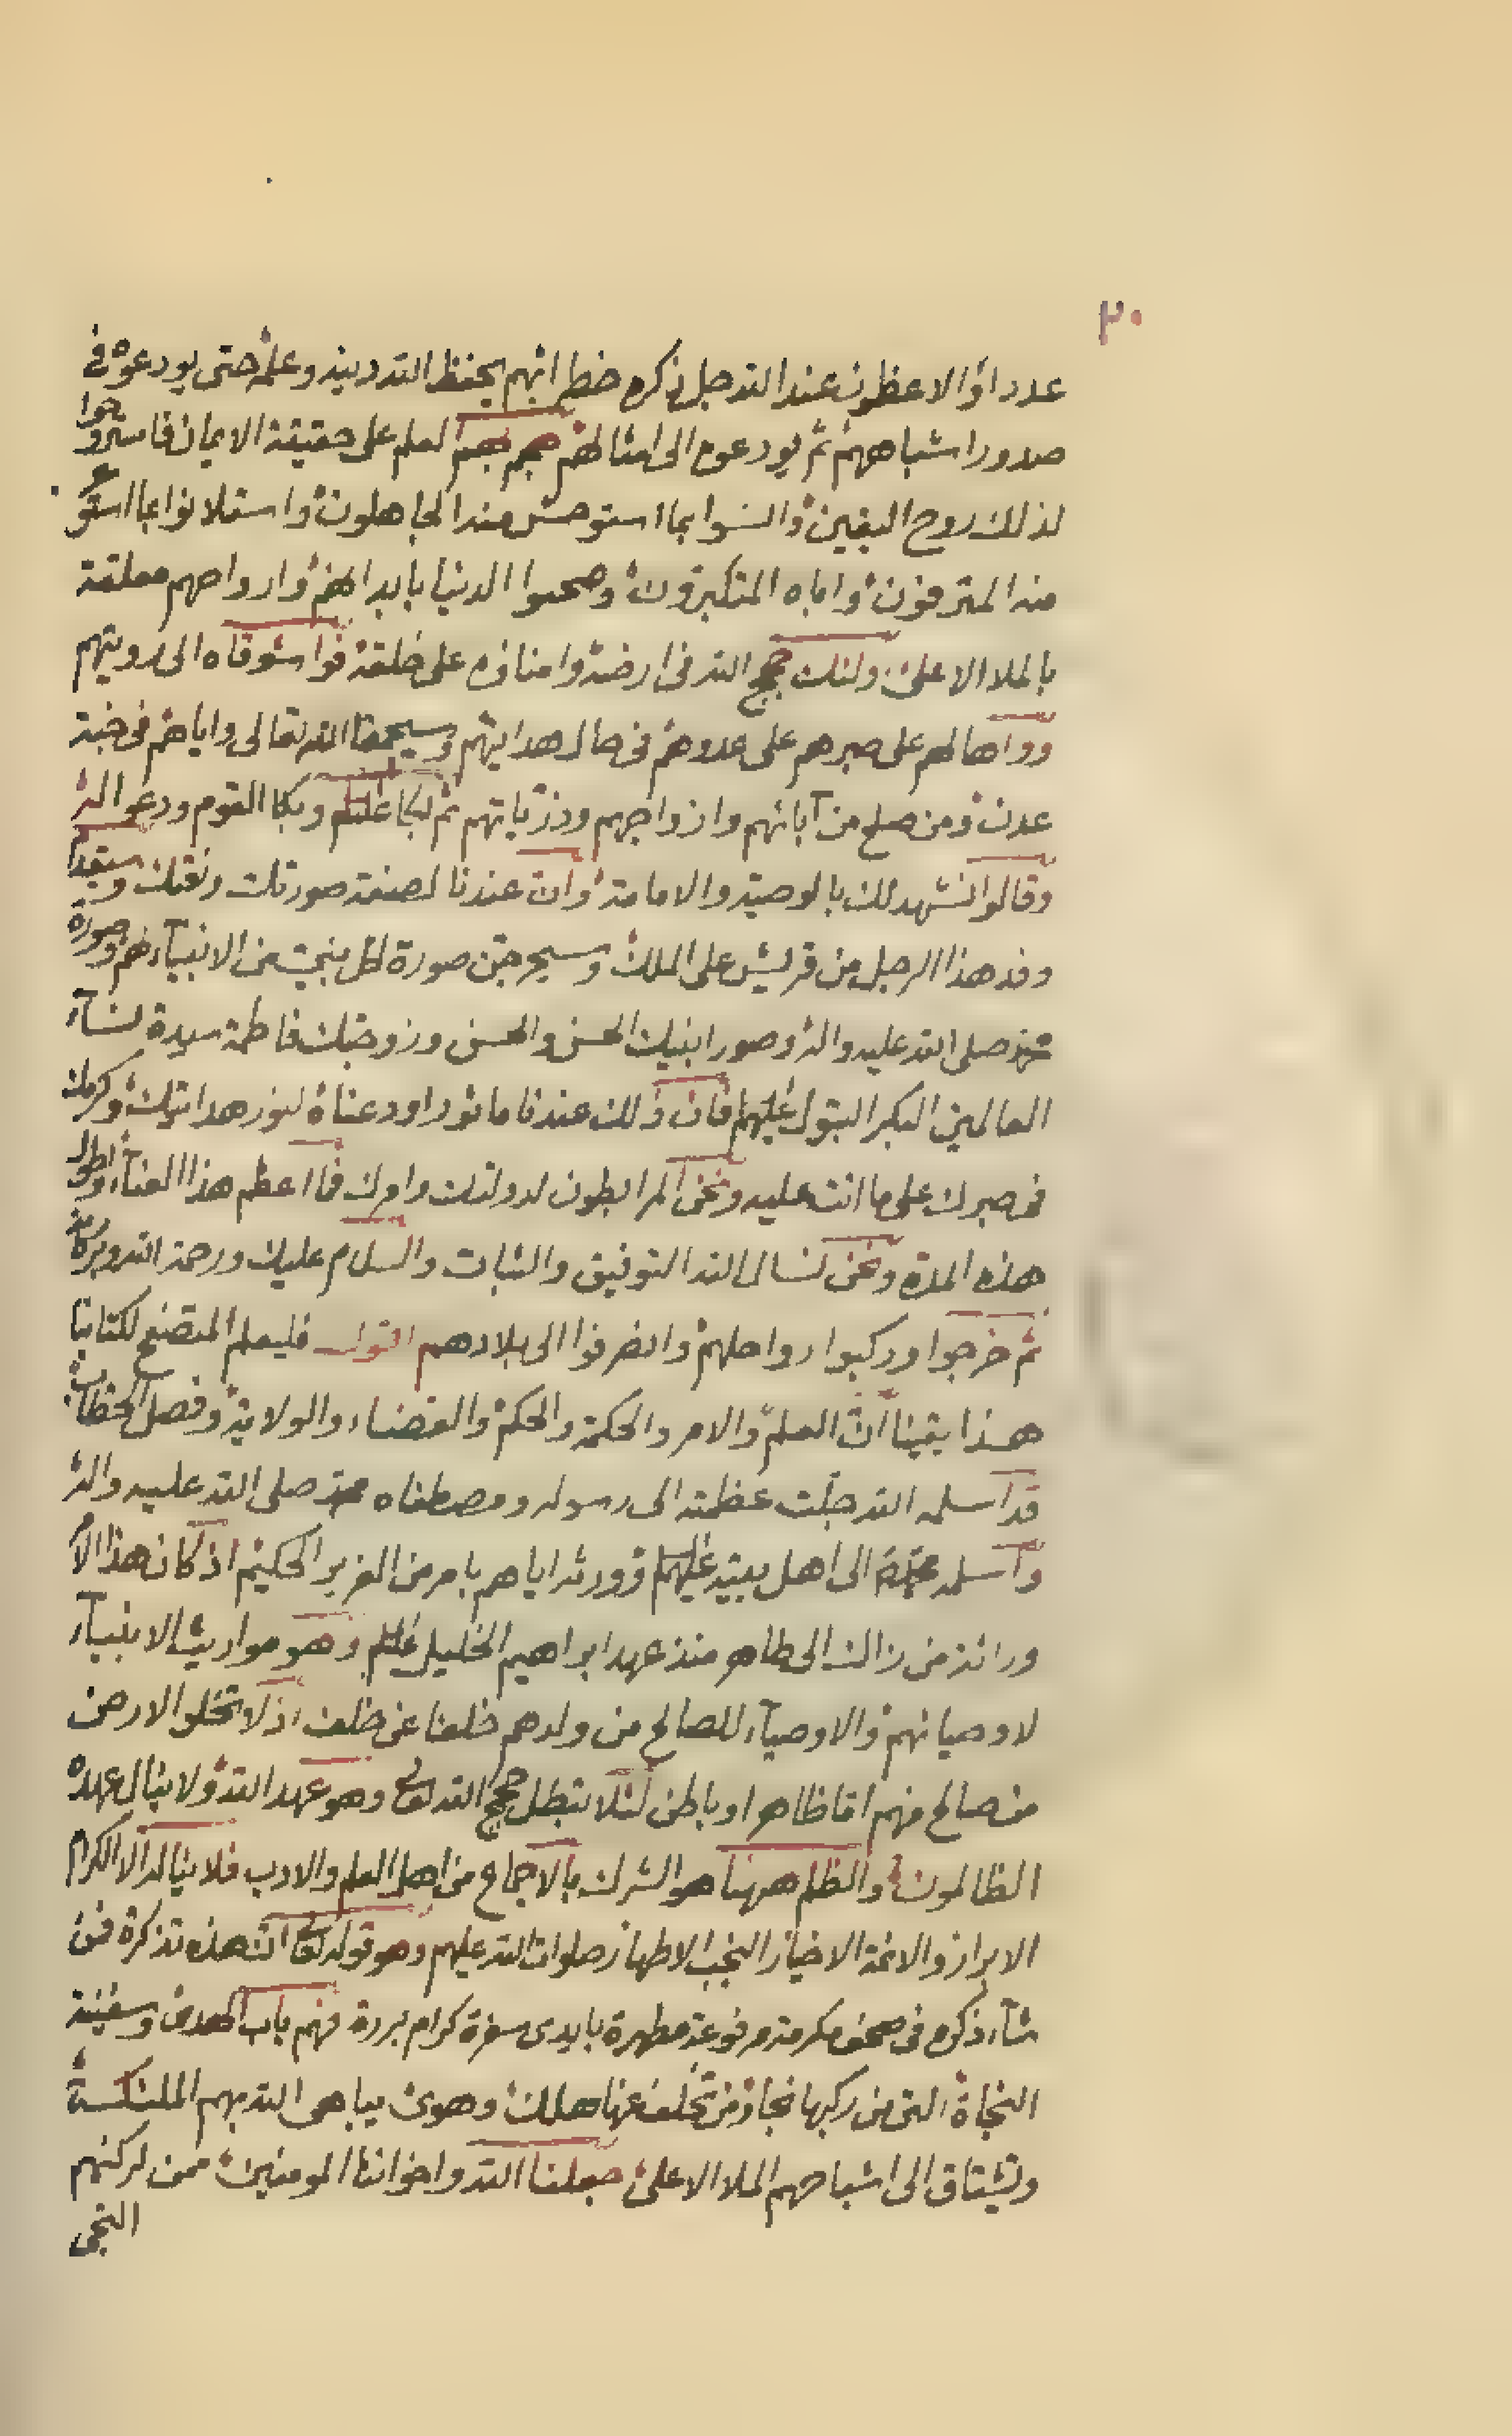 ٣٠
عددا والاعظمون عند الله جل ذكره خطرا بهم يحفظ الله دينه وعلمه حتى يودعوه في
صدور اشباههم ثم يودعوه الى امثالهم هجم بهم العلم على حقيقة الايمان فاستروحوا
لذلك روح اليقين وانسوا بما استوحش منه الجاهلون واستلانوا بما استوعر
منه المترفون واباه المتكبرون وصحبوا الدنيا بابدانهم وارواحهم معلقة
بالملا الاعلى اولئك حجج الله في ارضه وامناؤه على خلقه فواشوقاه الى رويتهم
وواها لهم على صبرهم على عدوهم في حال هدايتهم وسيجمعنا الله تعالى واياهم في جنة
عدن ومن صلح من آبائهم وازواجهم وذرياتهم ثم بكا عليلم وبكا القوم ودعوا له
وقالوا نشهد لك بالوصية والامامة وان عندنا لصفة صورتك ونعتك وسيقدم
وفد هذا الرجل من قريش على الملك وسيخرجن صورة لكل نبي من الانبياء لهم وصورة
محمد صلى الله عليه واله وصور ابنيك الحسن والحسين وزوجتك فاطمة سيدة نساء
العالمين البكر البتول عليها فان ذلك عندنا ماثورا ودعناه لنور هدايتك وكرمك
في صبرك على ما انت عليه ونحن المرابطون لدولتك وامرك فما اعظم هذا العناء واطول
هذه المدة ونحن نسال الله التوفيق والثبات والسلام عليك ورحمة الله وبركاته
ثم خرجوا وركبوا رواحلهم وانصرفوا الى بلادهم اقول فليعلم المتصفح لكتابنا
هذا يقينا ان العلم والامر والحكمة والحكم والقضاء والولاية وفصل الخطاب
قد اسلمه الله جلت عظمته الى رسوله ومصطفاه محمد صلى الله عليه واله
واسلمه محمد الى اهل بيته عليهم وورثه اياهم بامر من العزيز الحكيم اذ كان هذا الامر
وراثة من زاك الى طاهر منذ عهد ابراهيم الخليل عليلم وهو مواريث الانبياء
لاوصيائهم والاوصياء للصالح من ولدهم خلفا عن خلف اذ لا تخلو الارض
من صالح منهم اما ظاهر او باطن لئلا يبطل حجج الله تعالى وهو عهد الله ولا ينال عهده
الظالمون والظلم ههنا هو الشرك بالاجماع من اهل العلم والادب فلا يناله الا الكرام
الابرار والائمة الاخيار النجب الاطهار صلوات الله عليهم وهو قوله تعالى ان هذه تذكرة فمن
شاء ذكره في صحف مكرمة مرفوعة مطهرة بايدى سفرة كرام بررة فهم باب الهدى وسفينة
النجاة التي من ركبها نجا ومن تخلف عنها هلك وهوى يباهى الله بهم الملئكة
وتشتاق الى اشباحهم الملا الاعلى جعلنا الله واخواننا المومنين ممن له ركنهم
النجى